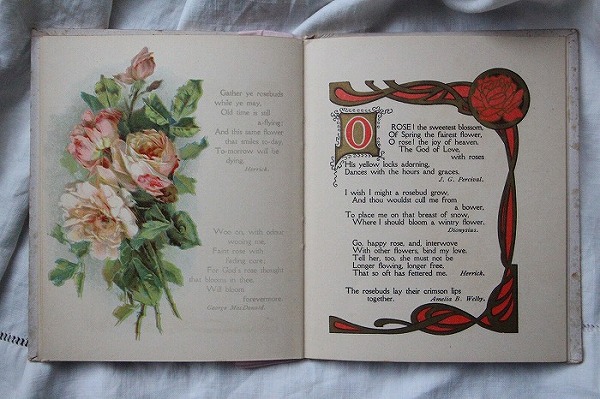 Gather ye rosebuds
while ye may,
Old time is still
a-flying
And this same flower
that smiles to-day,
To-morrow will be
dying.
Herrick.
Woo on, with odour
wooing me,
Faint rose with
fading core;
For God's rose thought
that blooms in thee,
Will bloom
forevermore.
George MacDonald.
O ROSE! the sweetest blossom,
Of Spring the fairest flower,
O rose! the joy of heaven.
The God of Love,
with roses
His yellow locks adorning,
Dances with the hours and graces.
J. G. Percival.
I wish I might a rosebud grow,
And thou wouldst cull me from
a bower,
To place me on that breast of snow,
Where I should bloom a wintry flower.
Dionysius.
Go, happy rose, and, interwove
With other flowers, bind my love.
Tell her, too, she must not be
Longer flowing, longer free,
That so oft has fettered me. Herrick.
The rosebuds lay their crimson lips
together. Amelia B. Welby.